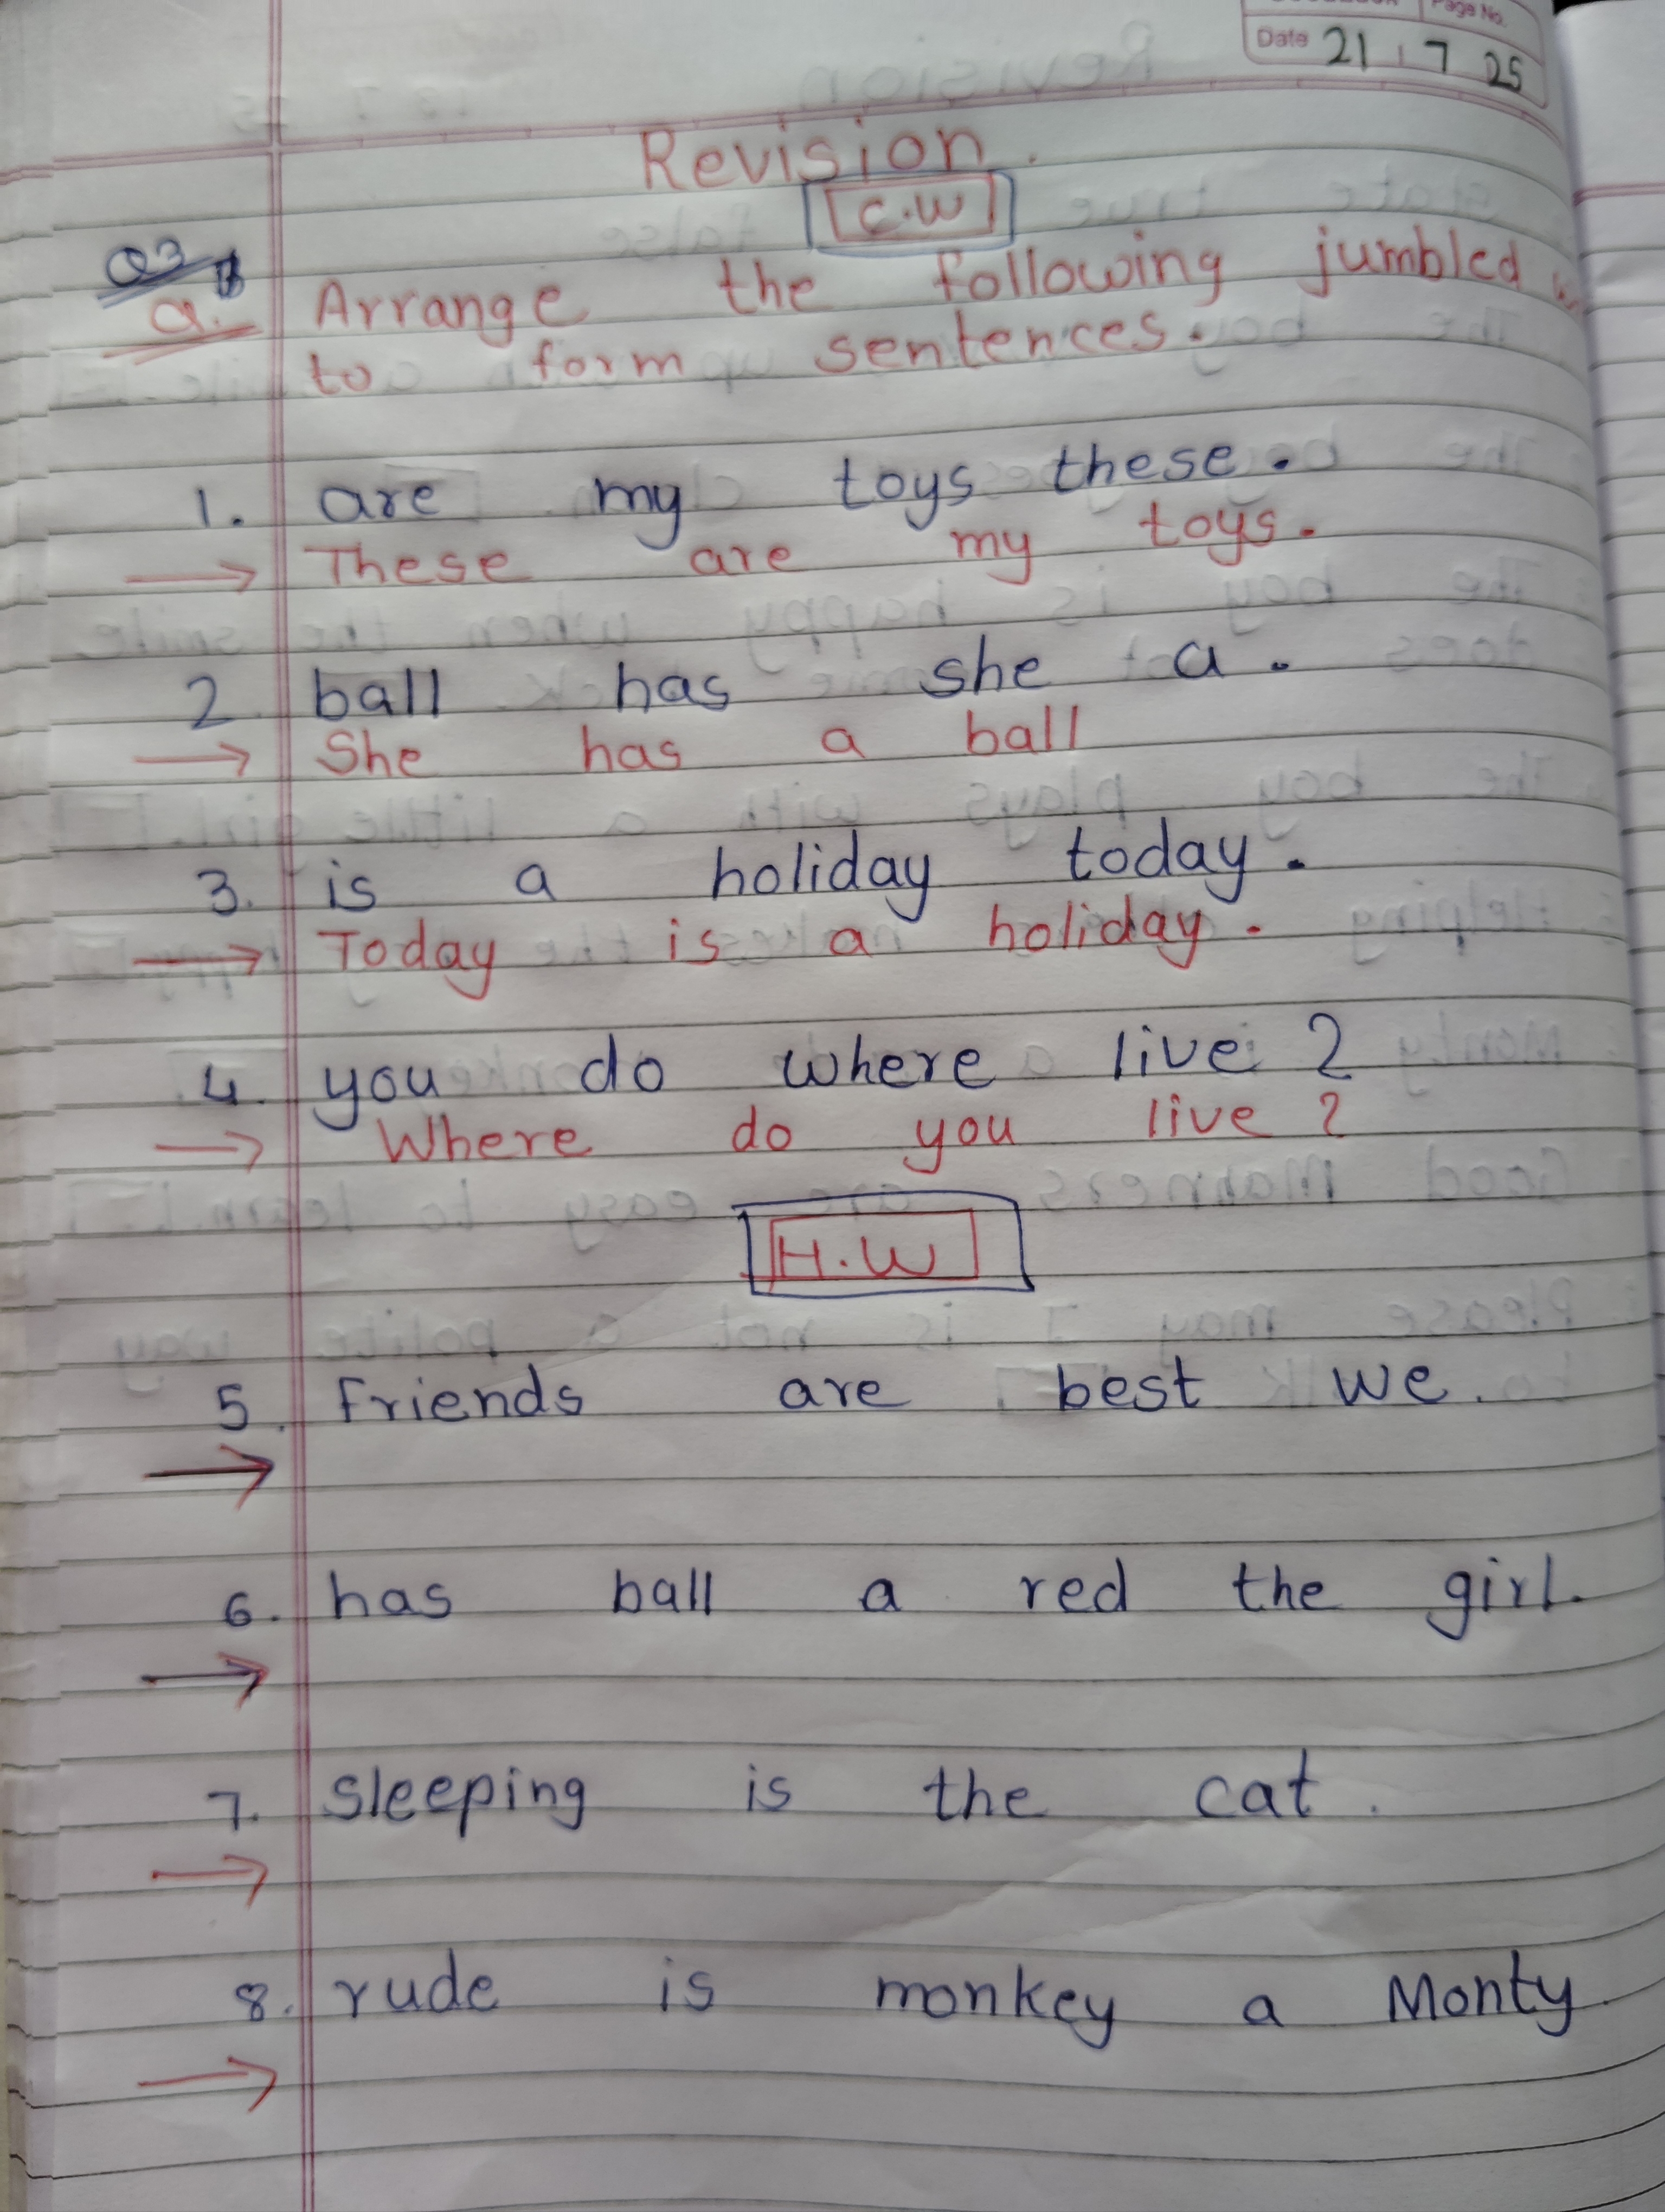 Page No.
Date 21 7 25
Revision.
C.W
Q3
a. Arrange the following jumbled
to form sentences.
1. are my toys these.
→ These are my toys.
2. ball has she a.
→ She has a ball
3. is a holiday today.
→ Today is a holiday.
4. you do where live ?
→ Where do you live ?
H.W
5. friends are best we.
→
6. has ball a red the girl.
→
7. sleeping is the cat.
→
8. rude is monkey a Monty.
→